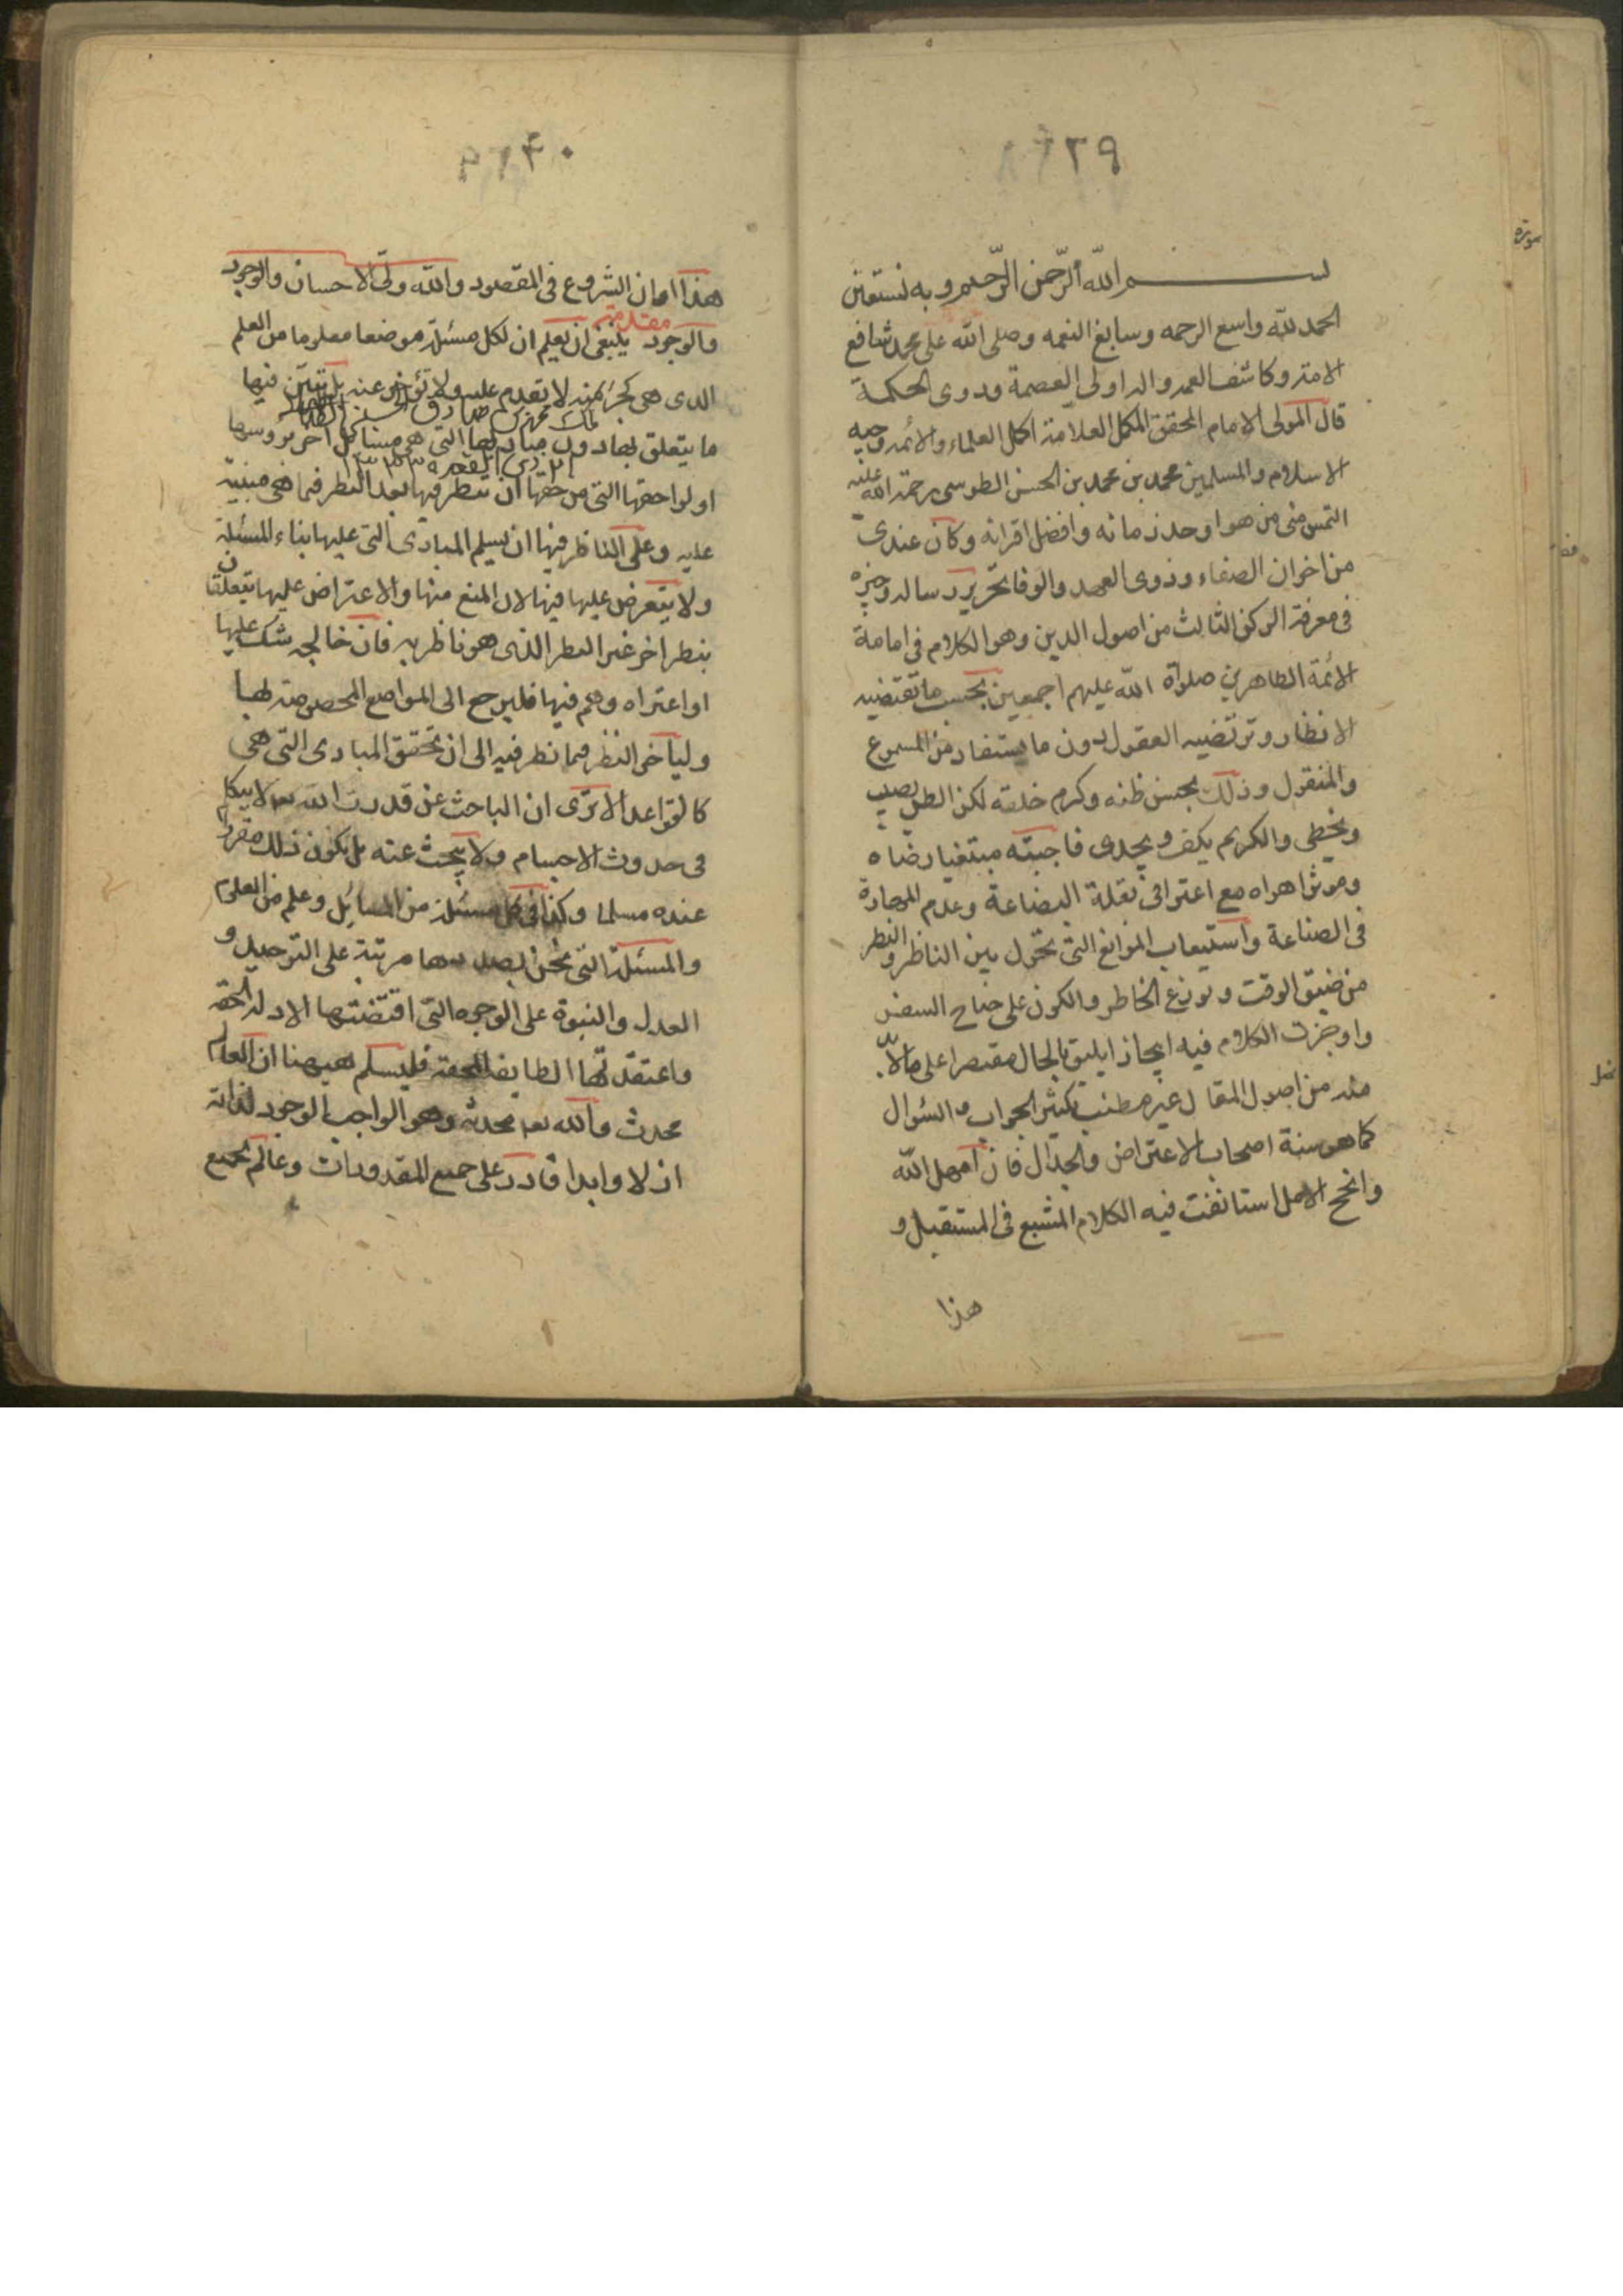 ٩٢٩
بسم الله الرّحمن الرّحيم وبه نستعين
الحمد لله واسع الرحمه وسابغ النعمه وصلى الله على محمد شافع
الامة وكاشف الغمه واله اولى العصمة وذوى الحكمة
قال المولى الامام المحقق المكمل العلامة اكمل العلماء والائمه وجيه
الاسلام والمسلمين محمد بن محمد بن الحسن الطوسى رحمة الله عليه
التمس منى من هو اوحد زمانه وافضل اقرانه وكان عندى
من اخوان الصفاء وذوى العهد والوفا تحرير رساله وجيزه
فى معرفة الركن الثالث من اصول الدين وهو الكلام فى امامة
الائمة الطاهرين صلوة الله عليهم اجمعين بحسب ما تقتضيه
الانظار وترتضيه العقول دون ما يستفاد من المسموع
والمنقول وذلك بحسن ظنه وكرم خلقه لكن الظن يصيب
ويخطى والكريم يكف ويجدى فاجبته مبتغيا رضاه
وموثرا هواه مع اعترافى بقلة البضاعة وعدم المهارة
فى الصناعة واستيعاب الموانع التى تحول بين الناظر والنظر
من ضيق الوقت وتوزع الخاطر والكون على جناح السفر
واوجزت الكلام فيه ايجازا يليق بالحال مقتصرا على ما لا بد
منه من اصول المقال غير مطنب بكثير الجواب والسؤال
كما هو سنة اصحاب الاعتراض والجدال فان امهل الله
وانجح الامل استانفت فيه الكلام المشبع فى المستقبل و
هذا
هذا اوان الشروع فى المقصود والله ولى الاحسان والجود
والوجود مقدمة ينبغى ان يعلم ان لكل مسئلة موضعا معلوما من العلم
الذى هى كجزء منه لا تقدم عليه ولا تؤخر عنه بل تبيّن فيها
ما يتعلق بها دون مباديها التى هى مسائل اخر بروسها
او لواحقها التى من حقها ان تنظر فيها بعد النظر فيما هى مبنية
عليه وعلى الناظر فيها ان يسلم المبادى التى عليها بناء المسئلة
ولا يتعرض عليها فيها لان المنع منها والاعتراض عليها يتعلقان
بنظر اخر غير النظر الذى هو ناظر به فان خالجه شك عليها
او اعتراه وهم فيها فليرجع الى المواضع المخصوصة لها
ولياخى النظر فيما نظر فيه الى ان تحقق المبادى التى هى
كالقواعد الا ترى ان الباحث عن قدرت الله تعالى لا يتكلم
فى حدوث الاجسام ولا يبحث عنه بل يكون ذلك مقررا
عنده مسلما وكذا فى كل مسئلة من المسائل وعلم من العلوم
والمسئلة التى نحن بصددها مرتبة على التوحيد و
العدل والنبوة على الوجوه التى اقتضتها الادلة الحقة
واعتقدتها الطايفه المحقة فليسلم هيهنا ان العالم
محدث والله تعالى محدثه وهو الواجب الوجود لذاته
ازلا وابدا قادر على جميع المقدورات وعالم بجميع